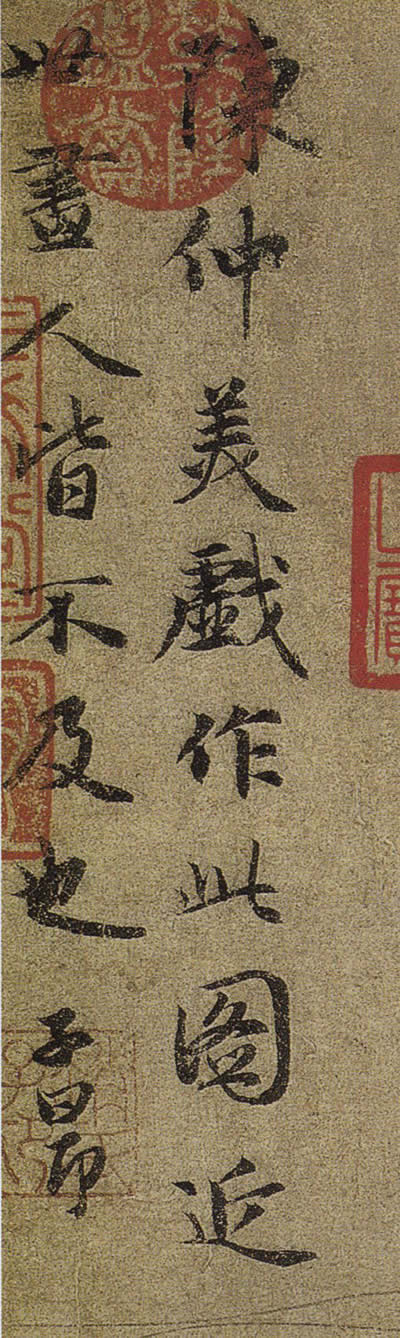 陳仲美戲作此圖近
世畫人皆不及也 子昂